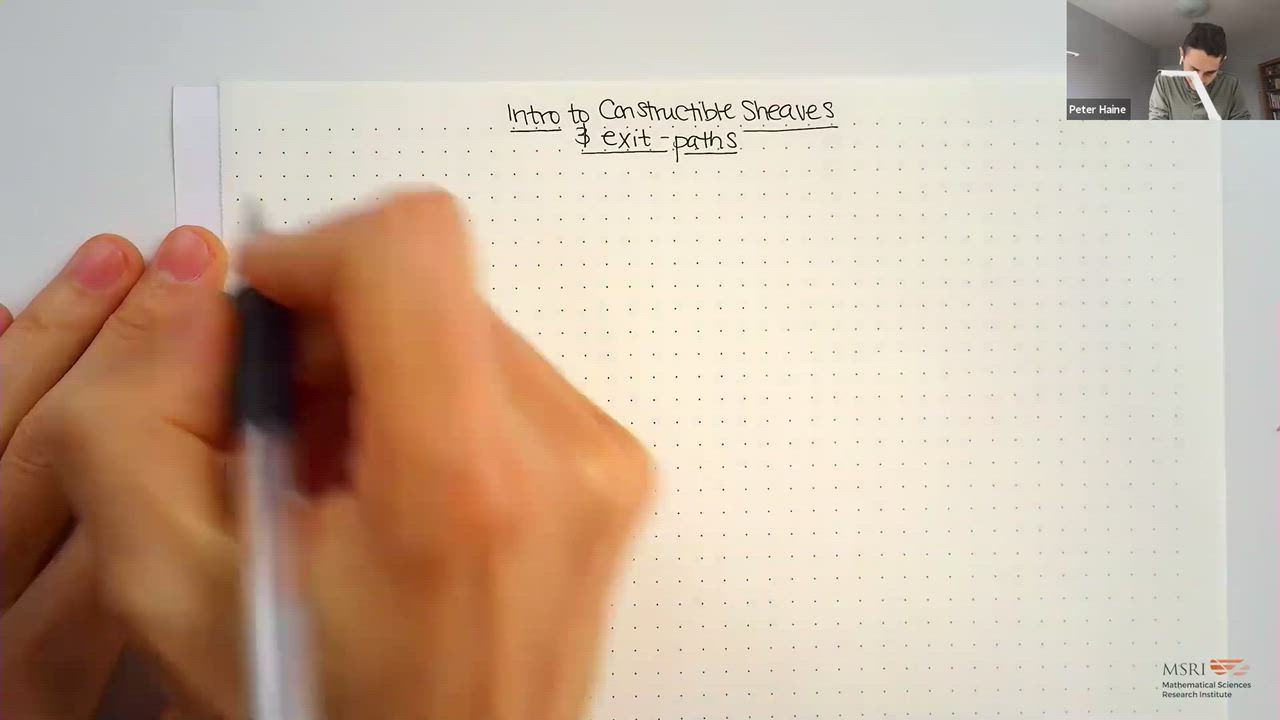 Intro to Constructible Sheaves
& exit-paths
Peter Haine
MSRI
Mathematical Sciences
Research Institute